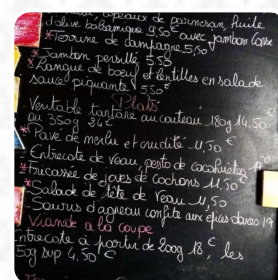 copeaux de parmesan, huile
d'olive balsamique 9,50€
*Terrine de campagne 5,50 avec jambon Corse
*Jambon persillé 5,50
*Langue de boeuf et lentilles en salade
sauce piquante 5,50€
Plats
Veritable tartare au couteau 180g 14,50
ou 350g 24€
*Pavé de merlu et crudité 11,50€
Entrecote de Veau, pesto de cacahuètes
*fricassée de joues de cochons 11,50€
*Salade de tête de Veau 11,50
-Souris d'agneau confite aux épices douces 19
Viande à la coupe
Entrecote à partir de 200g 18€, les
50g sup 4.50€